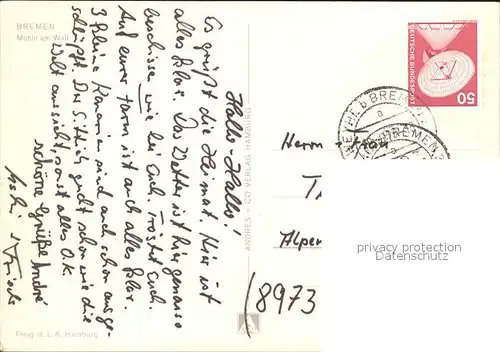 BREMEN
Mühle am Wall
Hallo - Hallo!
Es grüßt die Heimat. Hier ist
alles klar. Das Wetter ist hier genauso
beschissen wie bei Euch. Tröstet Euch.
Auf eurer Farm ist auch alles klar.
3 kleine Kanarien sind auch schon ausge-
schlüpft. Das Sittich guckt schon wie die
Welt aussieht, sonst alles O.K.
schöne Grüße André
ANDRES + CO VERLAG HAMBURG
Freig. d. L. A. Hamburg
DEUTSCHE BUNDESPOST
50
b BREMEN
a
BREMEN
a
Herrn + Frau
Alpen
8973
privacy protection
Datenschutz